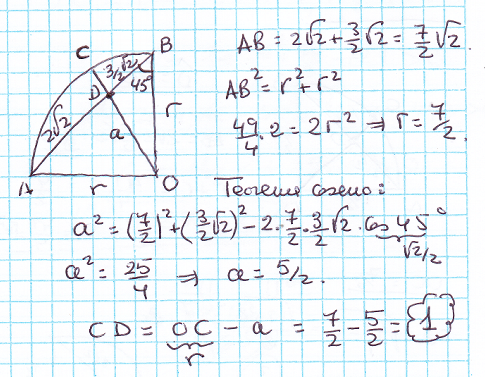 C
B
3/2√2
45°
D
2√2
a
r
A
r
O
AB = 2√2 + 3/2√2 = 7/2 √2.
AB² = r² + r²
49/4 · 2 = 2r² ⇒ r = 7/2.
a² = (7/2)² + (3/2√2)² − 2 · 7/2 · 3/2 √2 · cos 45°
√2/2
a² = 25/4 ⇒ a = 5/2.
CD = OC − a = 7/2 − 5/2 = {1}
r